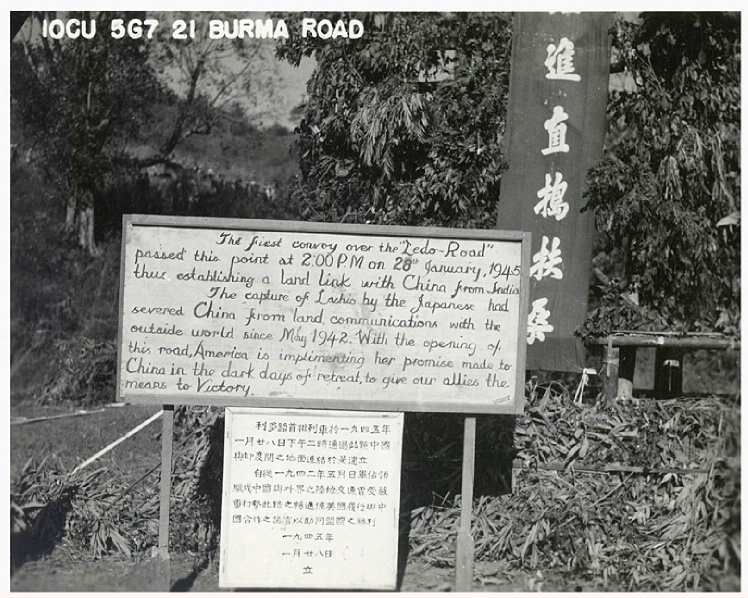 IOCU 5G7 21 BURMA ROAD
進直搗扶桑
The first convoy over the "Ledo-Road"
passed this point at 2:00 P.M on 28th January, 1945
thus establishing a land link with China from India
The capture of Lashio by the Japanese had
severed China from land communications with the
outside world since May 1942. With the opening of
this road, America is implimenting her promise made to
China in the dark days of retreat, to give our allies the
means to Victory.
利多路首批列車於一九四五年
一月廿八日下午二時通過此路中國
與印度間之地面連結於茲建立
自從一九四二年五月日軍佔領
臘戌中國與外界之陸地交通曾受嚴
重打擊此路之暢通後美國履行與中
國合作之諾言以助同盟國之勝利
一九四五年
一月廿八日
立